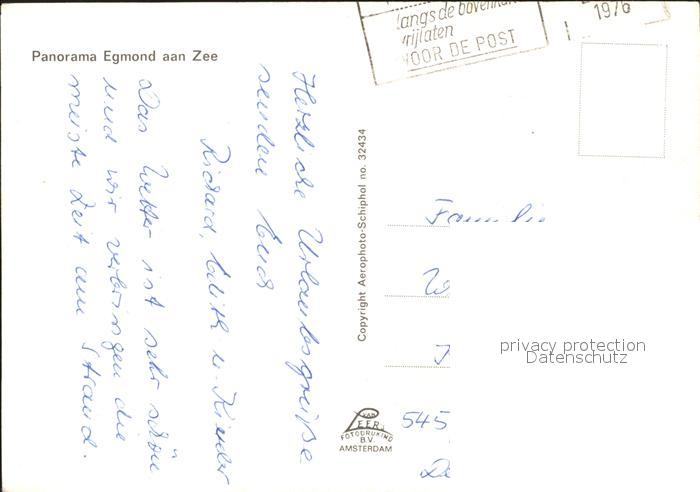 Panorama Egmond aan Zee
langs de bovenkant
vrijlaten
VOOR DE POST
1976
Herzliche Urlaubsgrüße
senden Euch
Richard, Edith u. Kinder
Das Wetter ist sehr schön
und wir verbringen die
meiste Zeit am Strand.
Copyright Aerophoto-Schiphol no. 32434
VAN
LEER
FOTODRUKIND
B.V.
AMSTERDAM
Familie
W
J
545
privacy protection
Datenschutz